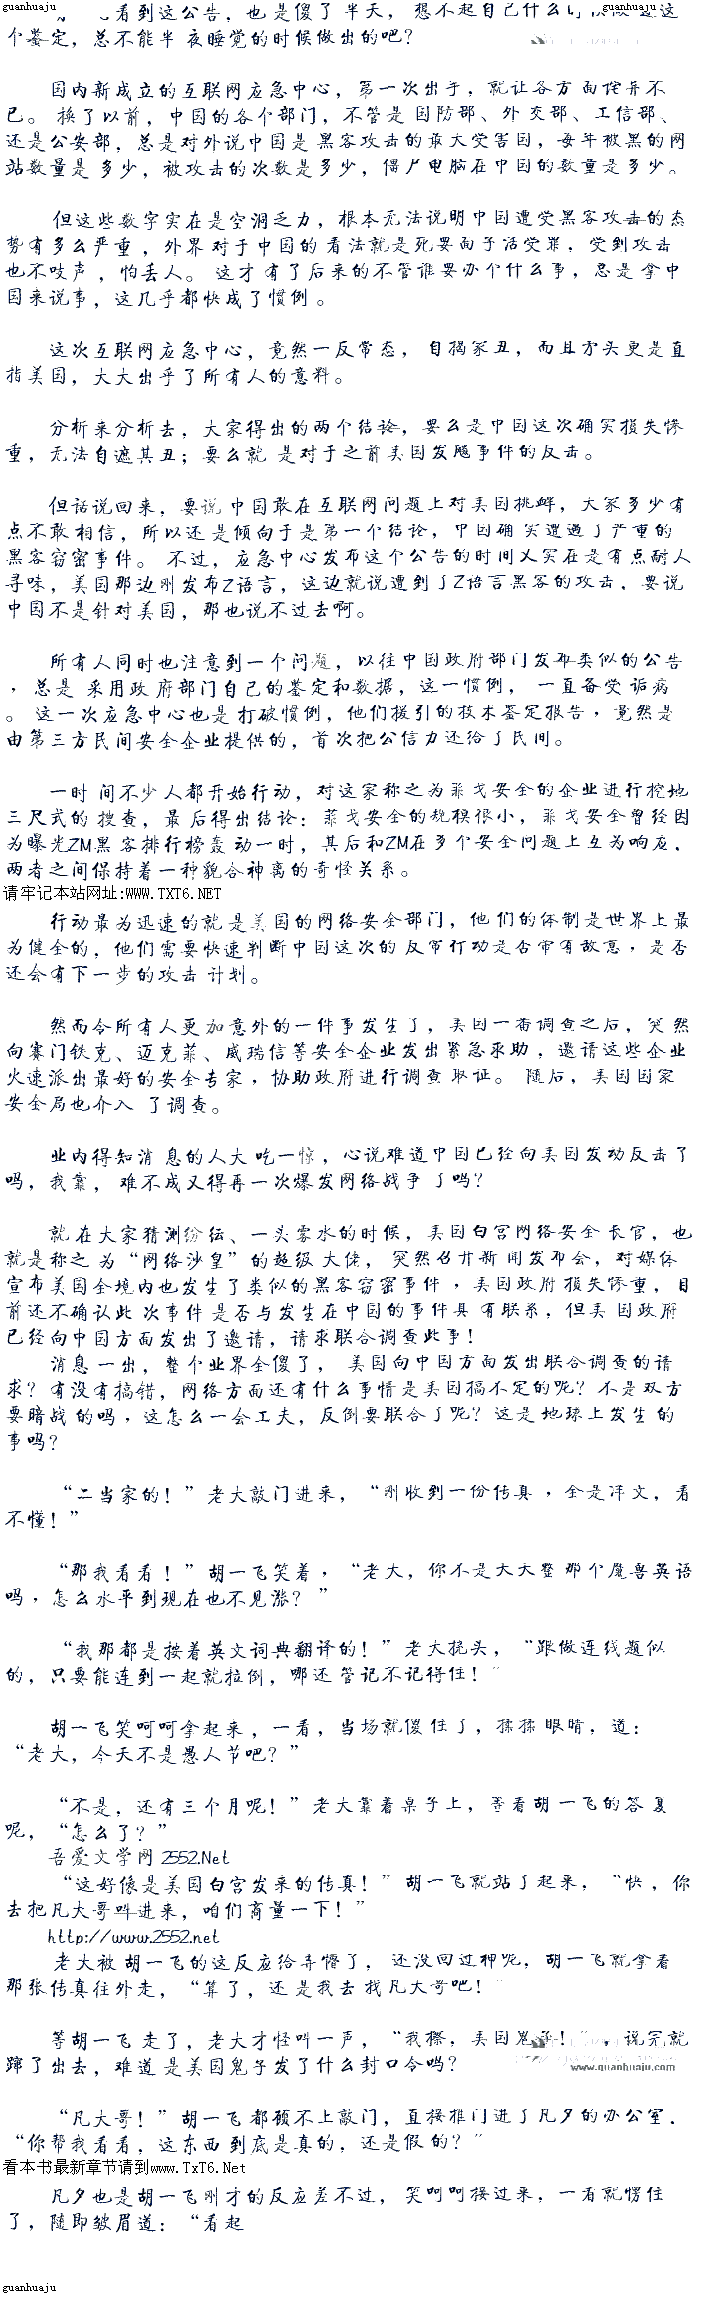 guanhuaju guanhuaju
看到这公告，也是傻了半天， 想不起自己什么时候做 过这
个鉴定，总不能半 夜睡觉的时候做出的吧？
国内新成立的互联网应急中心，第一次出手，就让各方面诧异不
已。 换了以前，中国的各个部门，不管是 国防部、外 交部、工信部、
还是公安部，总是对外说中国是 黑客攻击的最大受害国，每年被黑的网
站数量是 多少，被攻击的次数是多少，僵尸电脑在中国的数量是多少。
但这些数字实在是空洞乏力，根本无法说明中国遭受黑客攻击的态
势有多么严重 ，外界 对于中国的 看法就是死要面子活受罪，受到攻击
也不吱声 ，怕丢人。 这才 有了后来的不管谁要办个什么事，总是 拿中
国来说事，这几乎都快成了惯例 。
这次互联网应急中心，竟然一反常态， 自揭家丑，而且矛头更是直
指美国，大大出乎了所有人的意料。
分析来分析去，大家得出的两个结论，要么是中国这次确实损失惨
重，无法自遮其丑；要么就 是对于之前美国发飚事件的反击。
但话说回来，要说 中国敢在互联网问题上对美国挑衅，大家多少有
点不敢 相信，所以还是倾向于是第一个结论，中国确 实遭遇了严重的
黑客窃密事件。 不过，应急中心发布这个公告的时间又实在是有点耐人
寻味，美国那边刚发布Z语言，这边就说遭到了Z语言黑客的攻击，要说
中国不是针对美国，那也说不过去啊。
所有人同时也注意到一个问题，以往中国政府部门发布类似的公告
，总是 采用政府部门自己的鉴定和数据，这一惯例， 一直备受 诟病
。 这一次应急中心也是 打破惯例，他们援引的技术鉴定报告，竟然是
由第三方民间安全企业提供的，首次把公信力还给了民间。
一时 间不少人都开始行动，对这家称之为菲戈安全的企业进行挖地
三尺式的 搜查，最 后得出结论：菲戈安全的规模很小，菲戈安全曾经因
为曝光ZM黑 客排行榜轰 动一时，其后和ZM在多个安全问题上互为响应，
两者之间保持着一种貌合神离的奇怪关系。
请牢记本站网址:WWW.TXT6.NET
行动最为迅速的就 是美国的网络安全部门，他们的体制是世界上最
为健全的，他们需要快速判断中国这次的 反常行动是否带有敌意，是否
还会有下一步的攻击 计划。
然而令所有人更加意外的一件事发生了，美国一番调查之后，突然
向赛门铁克、迈克菲、威瑞信等安全企业发出紧急求助，邀请这些企业
火速派出最好的安全专家，协助政府进行调查 取证。 随后，美国国家
安全局也介入 了调查。
业内得知消 息的人大 吃一惊，心说难道中国已经向美国发动反击了
吗，我靠， 难不成又得再一次爆发网络战争 了吗？
就 在大家猜测纷纭、一头雾水的时候，美国白宫网络安全长官，也
就是称之 为“网络沙皇”的超级大佬， 突然召开新闻发布会，对媒体
宣布美国全境内也发生了类似的黑客窃密事件，美国政府 损失惨重，目
前还不确认此 次事件 是否与发生在中国的事件具 有联系，但美 国政府
已经向中国方面发出了邀请，请求联合调查此事！
消息 一出，整个业界全傻了， 美国向中国方面发出联合调查的请
求？有没有搞错，网络方面还有什么事情是美国搞不定的呢？不是双方
要暗战 的吗，这怎么一会工夫，反倒要联合了呢？这是 地球上发生 的
事吗？
“二当家的！”老大敲门进来， “刚收到一份传真 ，全是洋文，看
不懂！”
“那我看看！”胡一飞笑着，“老大，你不是天天整 那个魔兽英语
吗，怎么水平到现在也不见涨？”
“我那都是按着英文词典翻译的！”老大挠头，“跟做连线题似
的，只要能连到一起就拉倒，哪还 管记不记得住！”
胡一飞笑呵呵拿起来，一看，当场就傻 住了，揉揉 眼睛，道：
“老大，今天不是愚人节吧？”
“不是，还有三个月呢！”老大靠着桌子上，等着胡 一飞的答 复
呢，“怎么了？”
吾爱文学网 2552.Net
“这好像是美国白宫发来的传真！”胡一飞就站了起来，“快，你
去把凡大哥叫进来，咱们商量一下！”
http://www.2552.net
老大被 胡一飞的这反应给弄懵了， 还没回过神呢，胡一飞就拿着
那张传真往外走，“算了，还 是我去 找凡大哥吧！”
等胡一飞 走了，老大才怪叫一声，“我擦，美国鬼子！”，说完就
蹿了出去，难道 是美国鬼子发了什么封口令吗？
www.quanhuaju.com
“凡大哥！”胡一飞 都顾不上敲门，直接推门进了凡夕的办公室，
“你帮我看看，这东西 到底是真的，还是假 的？”
看本书最新章节请到www.TxT6.Net
凡夕也是 胡一飞刚才的反应差不过， 笑呵呵接过来，一看就愣住
了，随即皱眉道：“看起
guanhuaju